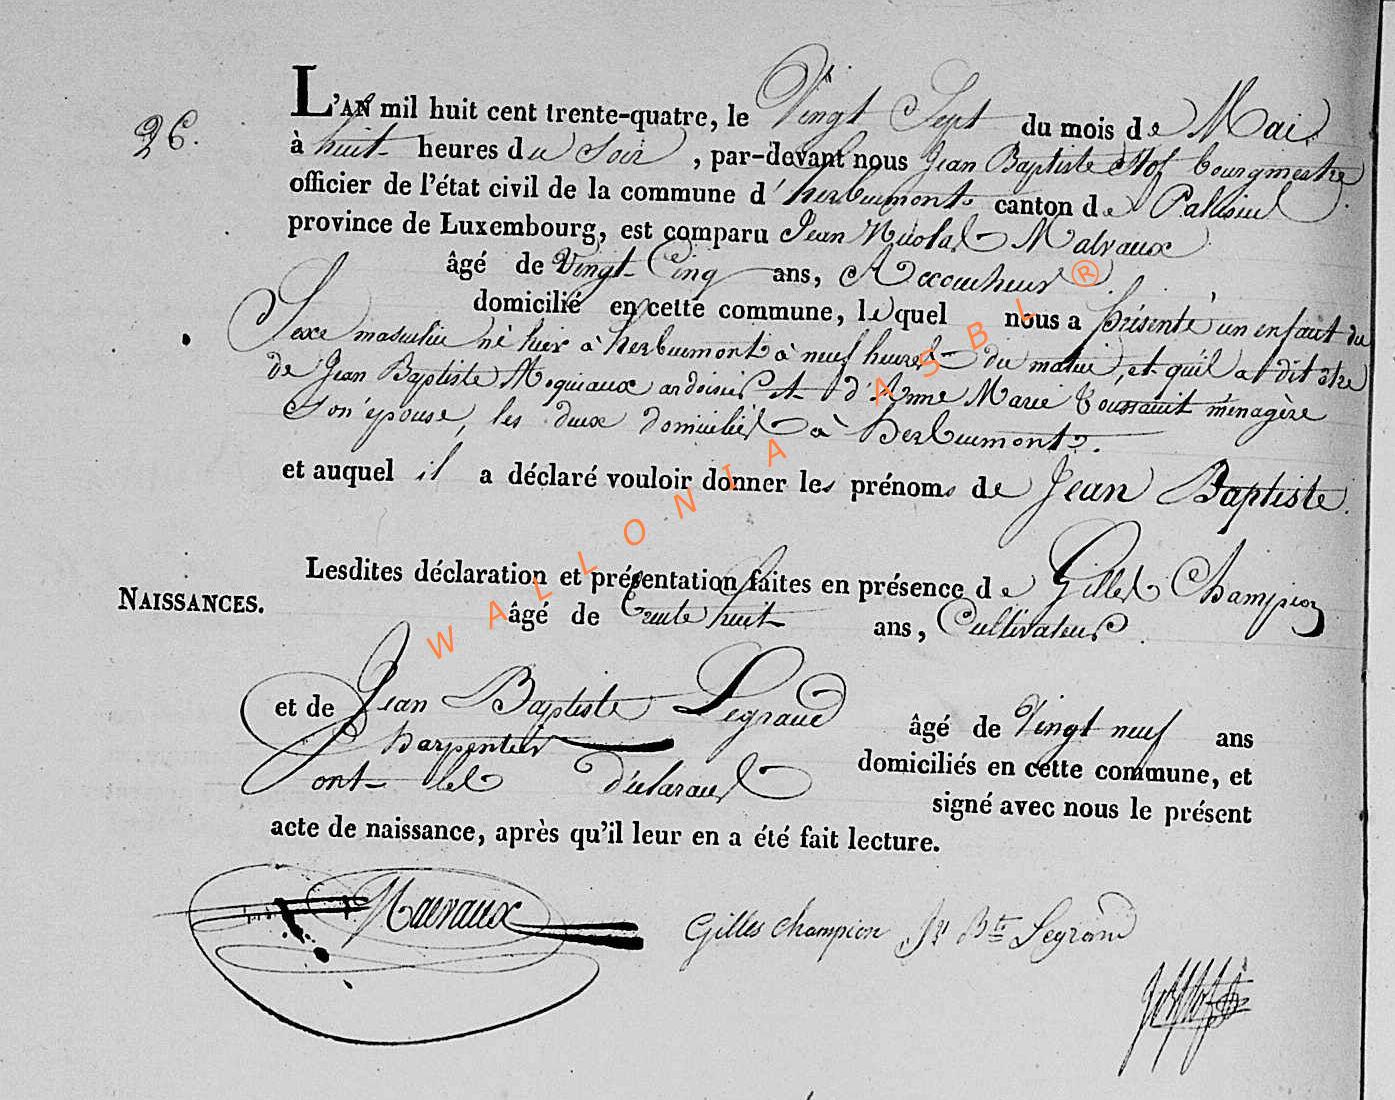 26.
L'AN mil huit cent trente-quatre, le Vingt Sept du mois de Mai.
à huit heures du Soir, par-devant nous Jean Baptiste bourgmestre
officier de l'état civil de la commune d'herbeumont canton de Paliseul
province de Luxembourg, est comparu Jean Nicolas Malvaux
âgé de Vingt Cinq ans, Accoucheur
domicilié en cette commune, lequel nous a présenté un enfant du
Sexe masculin né hier à herbeumont à neuf heures du matin, et qu'il a dit être
de Jean Baptiste ardoisier et d'Anne Marie ménagère
Son épouse, les deux domiciliés à herbeumont.
et auquel il a déclaré vouloir donner les prénoms de Jean Baptiste.
Lesdites déclaration et présentation faites en présence de Gilles Champion
NAISSANCES.
âgé de trente huit ans, Cultivateur
et de Jean Baptiste Legrand âgé de Vingt neuf ans
Charpentier
domiciliés en cette commune, et
ont les déclarans signé avec nous le présent
acte de naissance, après qu'il leur en a été fait lecture.
Malvaux Gilles Champion Jn Bte Legrand
WALLONIA ASBL ®